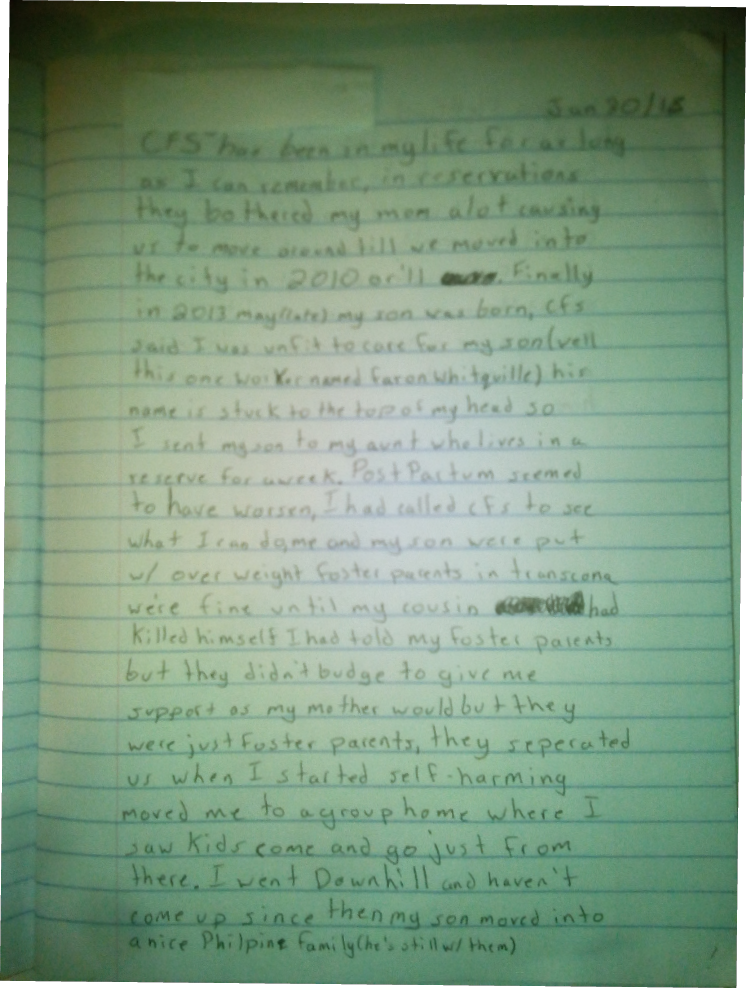 Jun 20/15
CFS has been in my life for as long
as I can remember, in reservations
they bothered my mom alot causing
us to move around till we moved into
the city in 2010 or '11 . Finally
in 2013 may(late) my son was born, cfs
said I was unfit to care for my son(well
this one worker named faron whitquille) his
name is stuck to the top of my head so
I sent my son to my aunt who lives in a
reserve for a week. Post Partum seemed
to have worsen, I had called cfs to see
what I can do, me and my son were put
w/ over weight foster parents in transcona
we're fine until my cousin had
killed himself I had told my foster parents
but they didn't budge to give me
support as my mother would but they
were just foster parents, they seperated
us when I started self-harming
moved me to a group home where I
saw kids come and go just from
there. I went Downhill and haven't
come up since then my son moved into
a nice Philpine family(he's still w/ them)
1